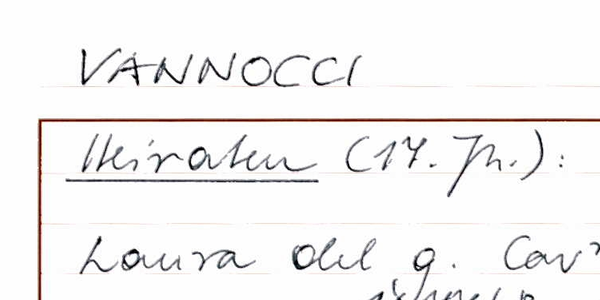 VANNOCCI
Heiraten (17. Jh.):
Laura del q. Cav